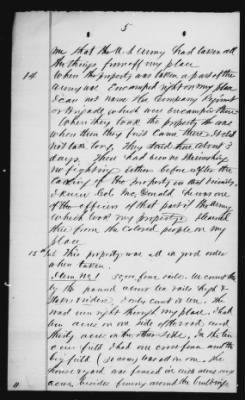 5
me that the U.S. Army had taken all
the things from off my place
14. When the property was taken a part of the
army was Encamped right on my place
I can not name the Company Regiment
or Brigade which was encamped there
When they took the property he was
when then they first came there It did
not take long, They about 3
days. There had been no
no fighting either before after the
taking of the property in that vicinity
I knew Col. He was one
of the officers of that part of the Army
which took my property I learned
this from the colored people on my
place
15th This property was all in good order
when taken.
Item No 1 some fine rails. We counted
by the pannel across ten rails high &
I only count it ten. The
road run right through my place. I had
ten acres on one side of the road, and
thirty acres on the other side. In the ten
acre field I had one some fence and the
big field (30 acres) was all in one. The
house yard was fenced in with seven
acres besides fencing around the buildings